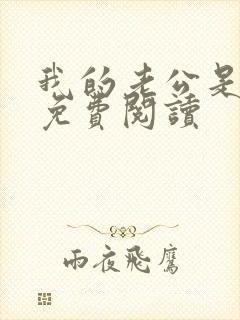 我的老公是
免費閱讀
雨夜飛鷹